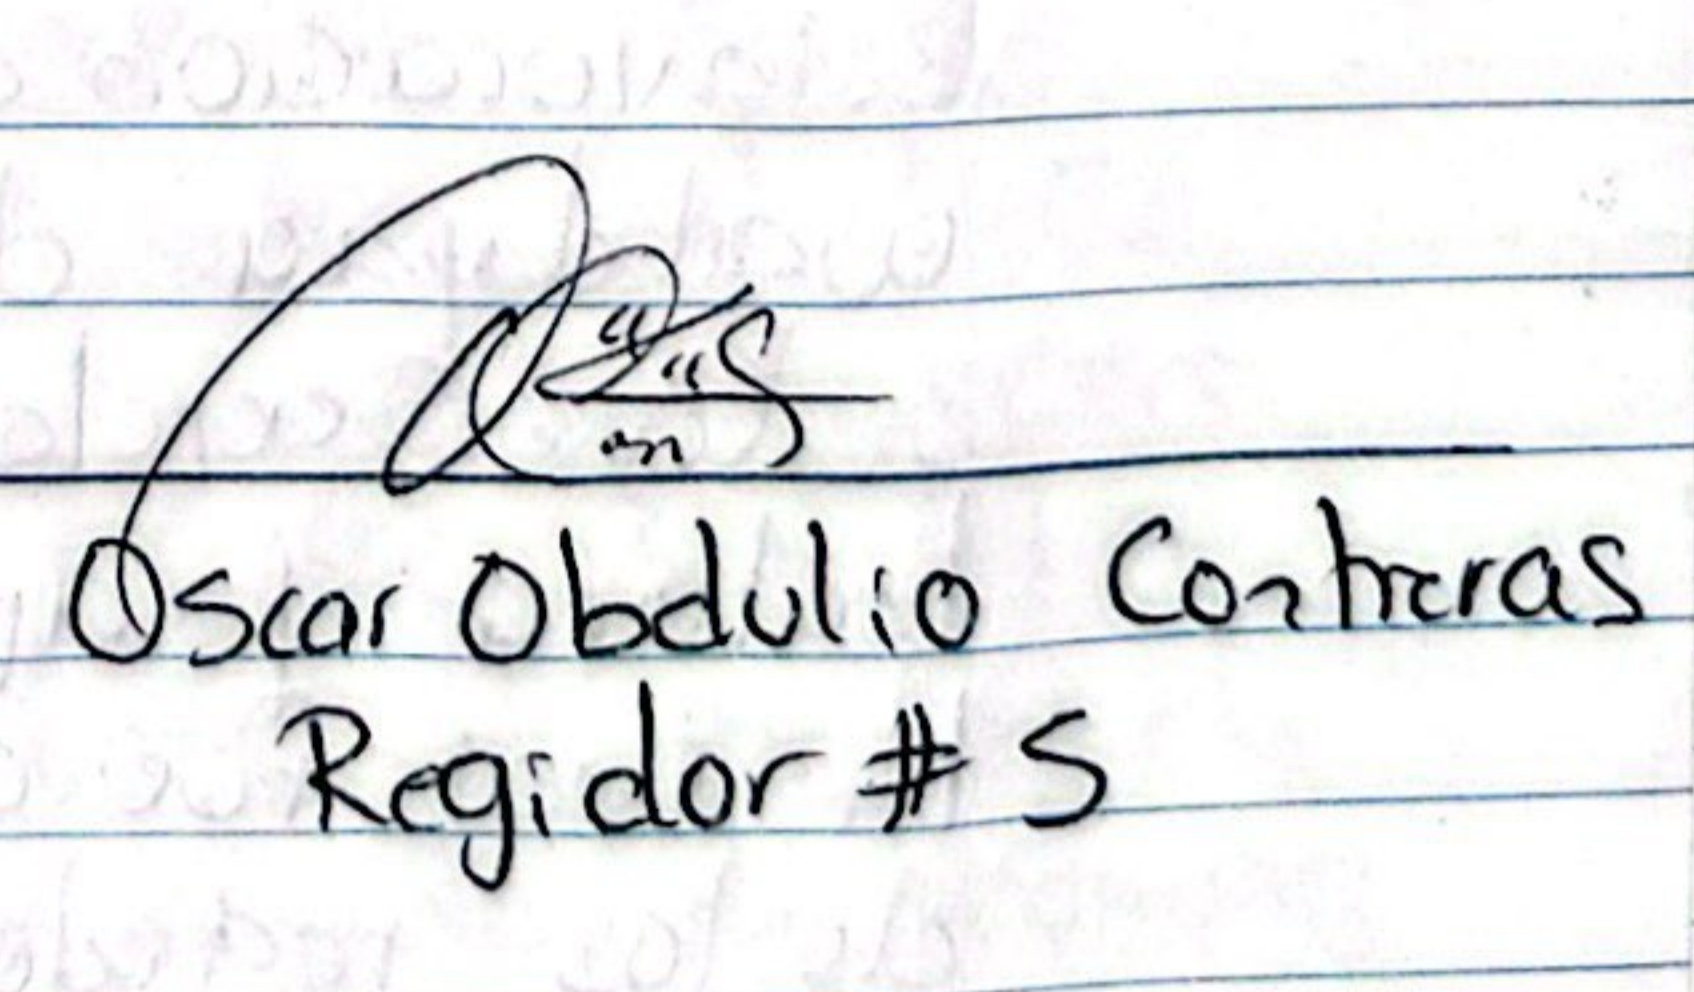 Oscar Obdulio Contreras
Regidor # 5